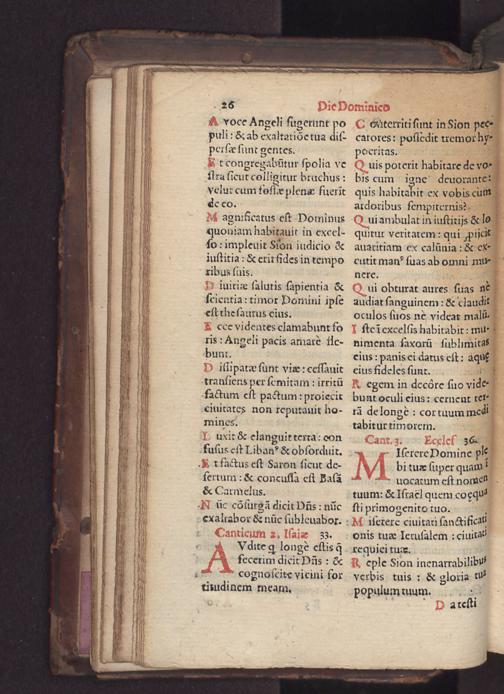 26
Die Dominico
A voce Angeli fugerunt po
puli: & ab exaltatiõe tua dis-
persæ sunt gentes.
Et congregabũtur spolia ve
stra sicut colligitur bruchus:
velut cum fossæ plenæ fuerit
de eo.
Magnificatus est Dominus
quoniam habitauit in excel-
so: impleuit Sion iudicio &
iustitia: & erit fides in tempo
ribus suis.
Diuitiæ salutis sapientia &
scientia: timor Domini ipse
est thesaurus eius.
Ecce videntes clamabunt fo
ris: Angeli pacis amarè fle-
bunt.
Dissipatæ sunt viæ: cessauit
transiens per semitam: irritũ
factum est pactum: proiecit
ciuitates non reputauit ho-
mines.
Luxit & elanguit terra: con
fusus est Libanꝰ & obsorduit.
Et factus est Saron sicut de-
sertum: & concussa est Basã
& Carmelus.
Nũc cõsurgã dicit Dñs: nũc
exaltabor & nũc subleuabor.
Canticum 2. Isaiæ 33.
AVdite q̃ longè estis q̃
fecerim dicit Dñs: &
cognoscite vicini for
titudinem meam.
Conterriti sunt in Sion pec-
catores: possedit tremor hy-
pocritas.
Quis poterit habitare de vo-
bis cum igne deuorante:
quis habitabit ex vobis cum
ardoribus sempiternis?
Qui ambulat in iustitijs & lo
quitur veritatem: qui ꝓijcit
auaritiam ex calũnia: & ex-
cutit manꝰ suas ab omni mu-
nere.
Qui obturat aures suas nè
audiat sanguinem: & claudit
oculos suos nè videat malũ.
Iste ĩ excelsis habitabit: mu-
nimenta saxorũ sublimitas
eius: panis ei datus est: aquę
eius fideles sunt.
Regem in decôre suo vide-
bunt oculi eius: cernent ter-
rã de longè: cor tuum medi
tabitur timorem.
Cant. 3. Ecclес 36.
MIserere Domine ple
bi tuæ super quam ĩ
uocatum est nomen
tuum: & Israël quem coęqua
sti primogenito tuo.
Miserere ciuitati sanctificati
onis tuæ Ierusalem: ciuitati
requiei tuæ.
Reple Sion inenarrabilibus
verbis tuis: & gloria tua
populum tuum.
Da testi